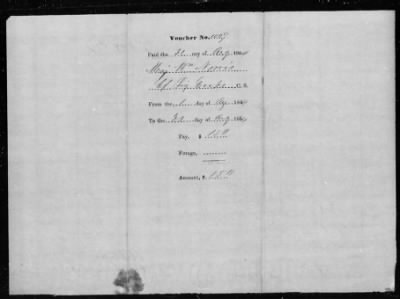 Voucher No. 1027
Paid the 31 day of Aug 1864
Maj Wm Norris
Sig Corps C. S.
From the 1 day of Aug 1864
To the 31 day of Aug 1864
Pay, $
Forage,
Amount, $